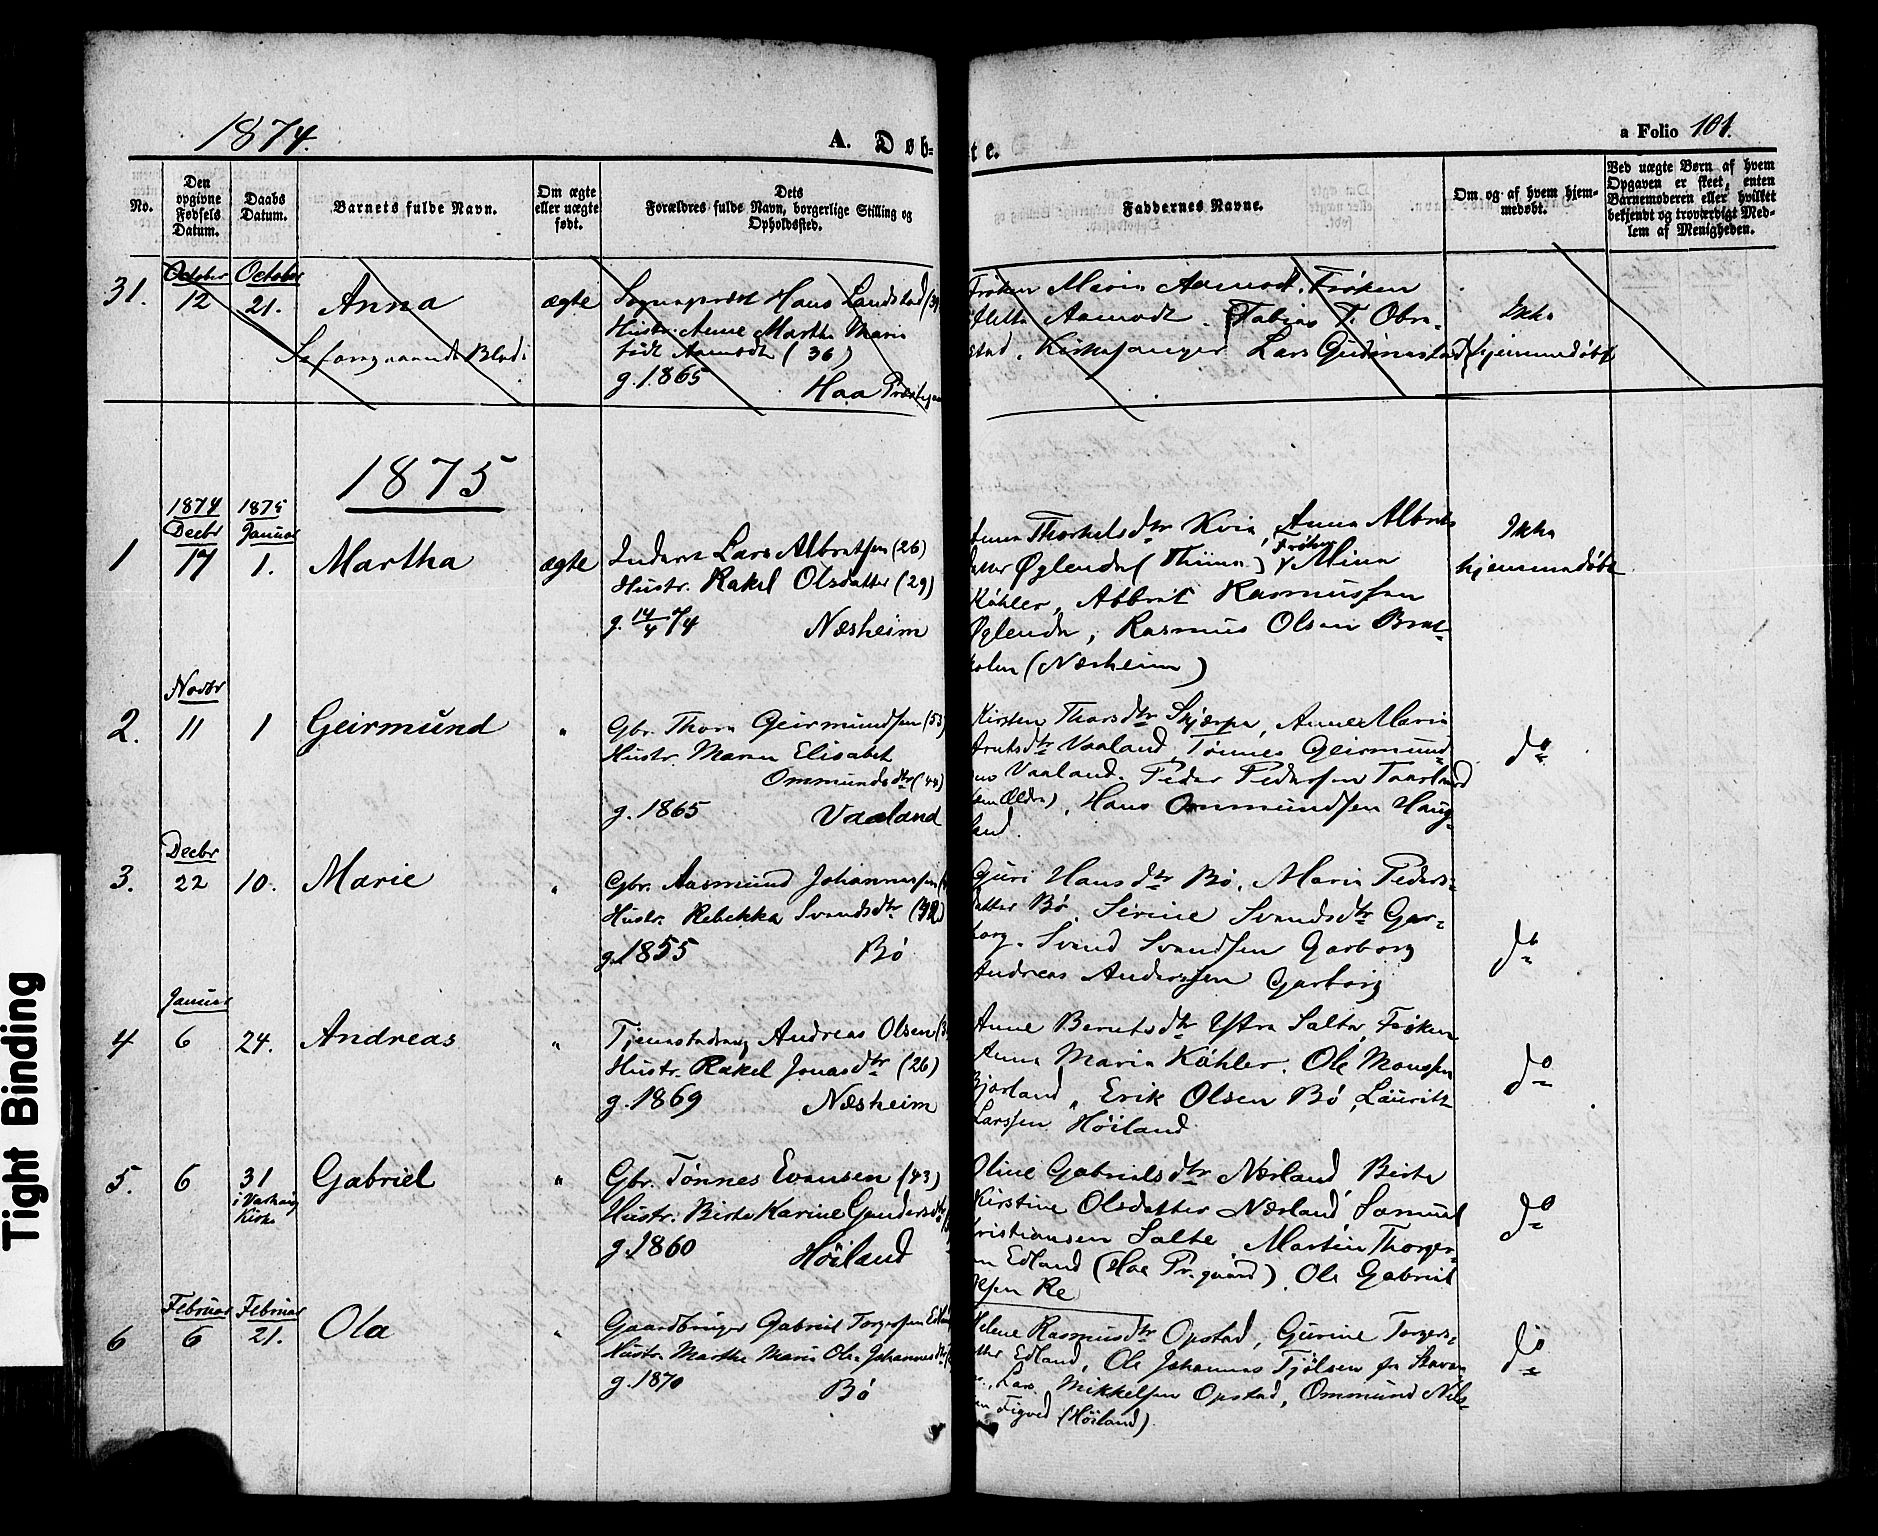 1874.
A. Døb-
te.
a Folio 101.
No.
Den opgivne Fødsels Datum.
Daabs Datum.
Barnets fulde Navn.
Om ægte eller uægte født.
Dets Forældres fulde Navn, borgerlige Stilling og Opholdssted.
Faddernes Navne.
Om og af hvem hjemmedøbt.
Ved uægte Børn af hvem Opgaven er skeet, enten Barnemoderen eller hvilket bekjendt og troværdigt Medlem af Menigheden.
31.
October
12
October
21.
Anna
Se foregaaende Blad
ægte
Sogneprest Hans Landstad
Hustr. Anne Marthe Marie
født Aamodt (36)
g. 1865 Haa
Frøken Marie Aamodt, Frøken
Aamodt. Tobias T. Obre-
stad, Kirkesanger Lars Gudmestad
Ikke
hjemmedøbt
1875
1
1874
Decbr
17
1875
Januar
1.
Martha
ægte
Inderst Lars Albretsen (26)
Hustr. Rakel Olsdatter (29)
g. 14/4 74 Næsheim
Thorkelsdtr Kvia, Anna Albrets
datter Øglende (Thiime) Frøken Mina
Kähler, Albret Rasmussen
Øglende, Rasmus Olsen Brat-
holen (Næsheim)
Ikke
hjemmedøbt
2.
Novbr
11
1
Geirmund
"
Gbr. Thore Geirmundsen (53)
Hustr. Maren Elisabet
Ommundsdtr (44)
g. 1865 Vaaland
Kirsten Thorsdtr Skjærpe, Anne Marie
Arntsdtr Vaaland, Tønnes Geirmund-
sens Vaaland. Peder Pedersen Taarland
Hans Ommundsen Haug-
land.
do
3.
Decbr
22
10.
Marie
"
Gbr. Aasmund Johannessen
Hustr. Rebekka Svendsdtr (42)
g. 1855 Bø
Guri Hansdtr Bø, Marie Peders-
datter Bø, Serine Svendsdtr Gar-
borg. Svend Svendsen Garborg
Andreas Anderssen Garborg
do
4
Januar
6
24.
Andreas
"
Tjenestedreng Andreas Olsen
Hustr. Rakel Jonasdtr (26)
g. 1869 Næsheim
Anne Berntsdtr Ystre Salte, Frøken
Anna Maria Kähler. Ole Monssen
Bjorland, Erik Olsen Bø, Lauritz
Larssen Höiland
do
5.
6
31
i Varhaug
Kirke
Gabriel
"
Gbr. Tønnes Evensen (43)
Hustr. Birte Karine Gundersdtr
g. 1860 Höiland
Oline Gabrielsdtr Nærland Birte
Kirstine Olsdatter Nærland, Samuel
Kristiansen Salte, Martin Thorger-
sen Edland (Haa Pr.gaard). Ole Gabriel
Re
do
6
Februar
6
Februar
21.
Ola
"
Gaardbruger Gabriel Torgersen Edland
Hustr. Marthe Marie Ols. Johannesdtr
g. 1870 Bö
Helene Rasmusdtr Opstad, Gurine Torgers-
datter Edland, Ole Johannes Tjölsen fra Stavan
Lars Mikkelsen Opstad, Ommund Nils-
sen Tigved (Höiland).
do
Tight Binding